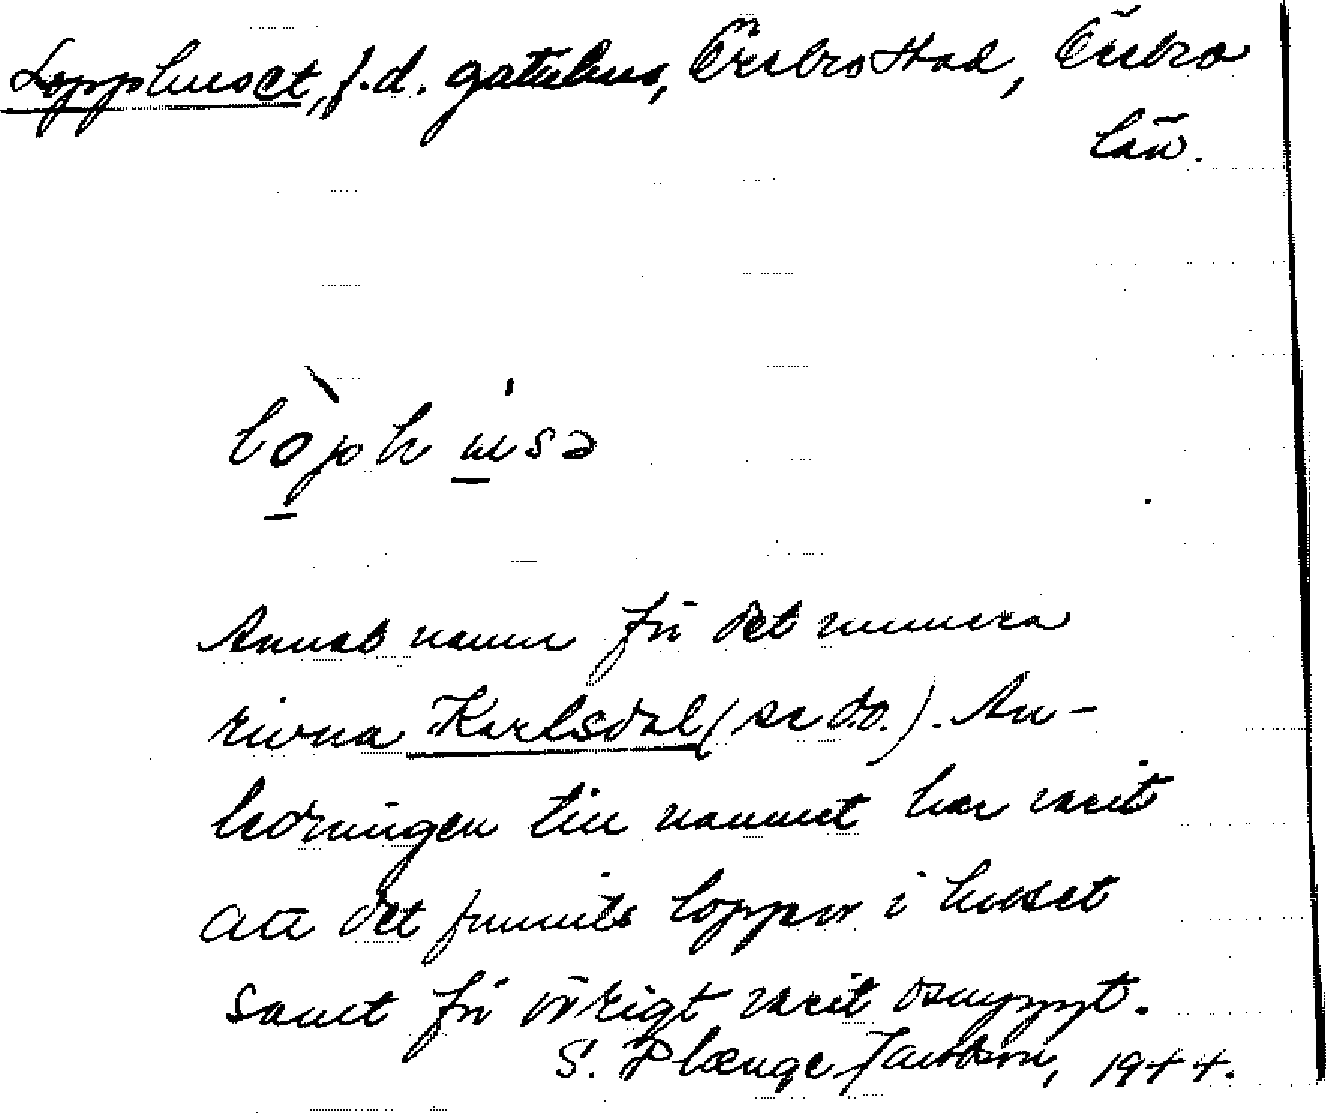 Lopphuset, f.d. gatuhus, Örebro stad, Örebro
län.
Annat namn för det numera
rivna Karlsdal (se d.o.). An-
ledningen till namnet har varit
att det funnits loppor i huset
samt för övrigt varit osnyggt.
S. Plænge Jacobson, 1944.